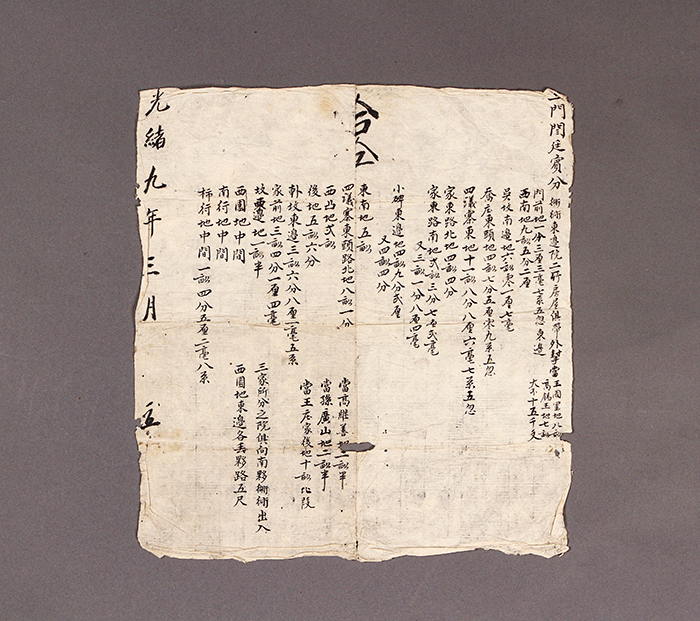 門閏廷賓分 衚衕東邊院二所房屋俱帶外
當王園里地八畝
大錢十五千文
門前地一分三厘三毫七系五忽東邊
西南地九畝五分二厘
吳坟南邊地六畝零一厘七毫
喬庄東頭地四畝七分五厘零九系五忽
四議寨東地十一畝八分八厘六毫七系五忽
家東路北地四畝四分
家東路南地弍畝三分七厘弍毫
又三畝一分八厘四毫
小碑東邊地四畝九分弍厘
又四畝四分
東南地五畝
四議寨東頭路北地八畝一分
西凸地弍畝
後地五畝六分
斜坟東邊三畝六分八厘一毫五系
家前地三畝四分一厘四毫
坟邊地一畝半
西園地中間
南行地中間
柿行地中間 一畝四分五厘二毫八系
當高繼善地一畝半
當孫廣山地二畝半
當王庄家後地十畝北段
三家所分之院俱向南夥衚衕出入
西園地東邊各丟夥路五尺
光緒九年三月 立